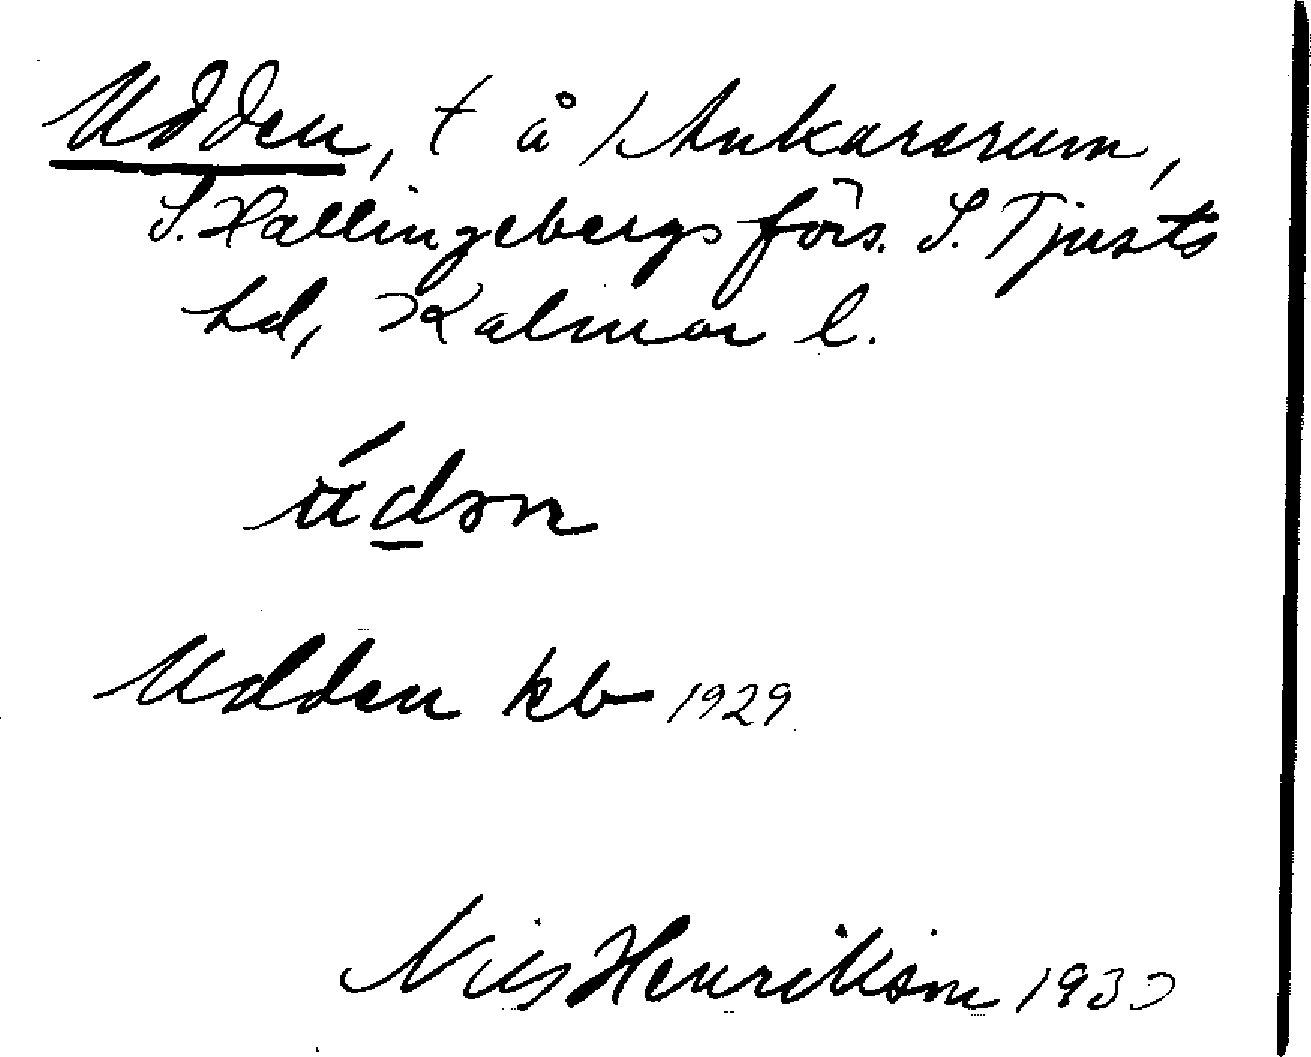 Udden, t å 1 Ankarsrum,
S. Hallingebergs förs. S. Tjusts
hd, Kalmar l.
Udden kb 1929
Nils Henrikson 1930